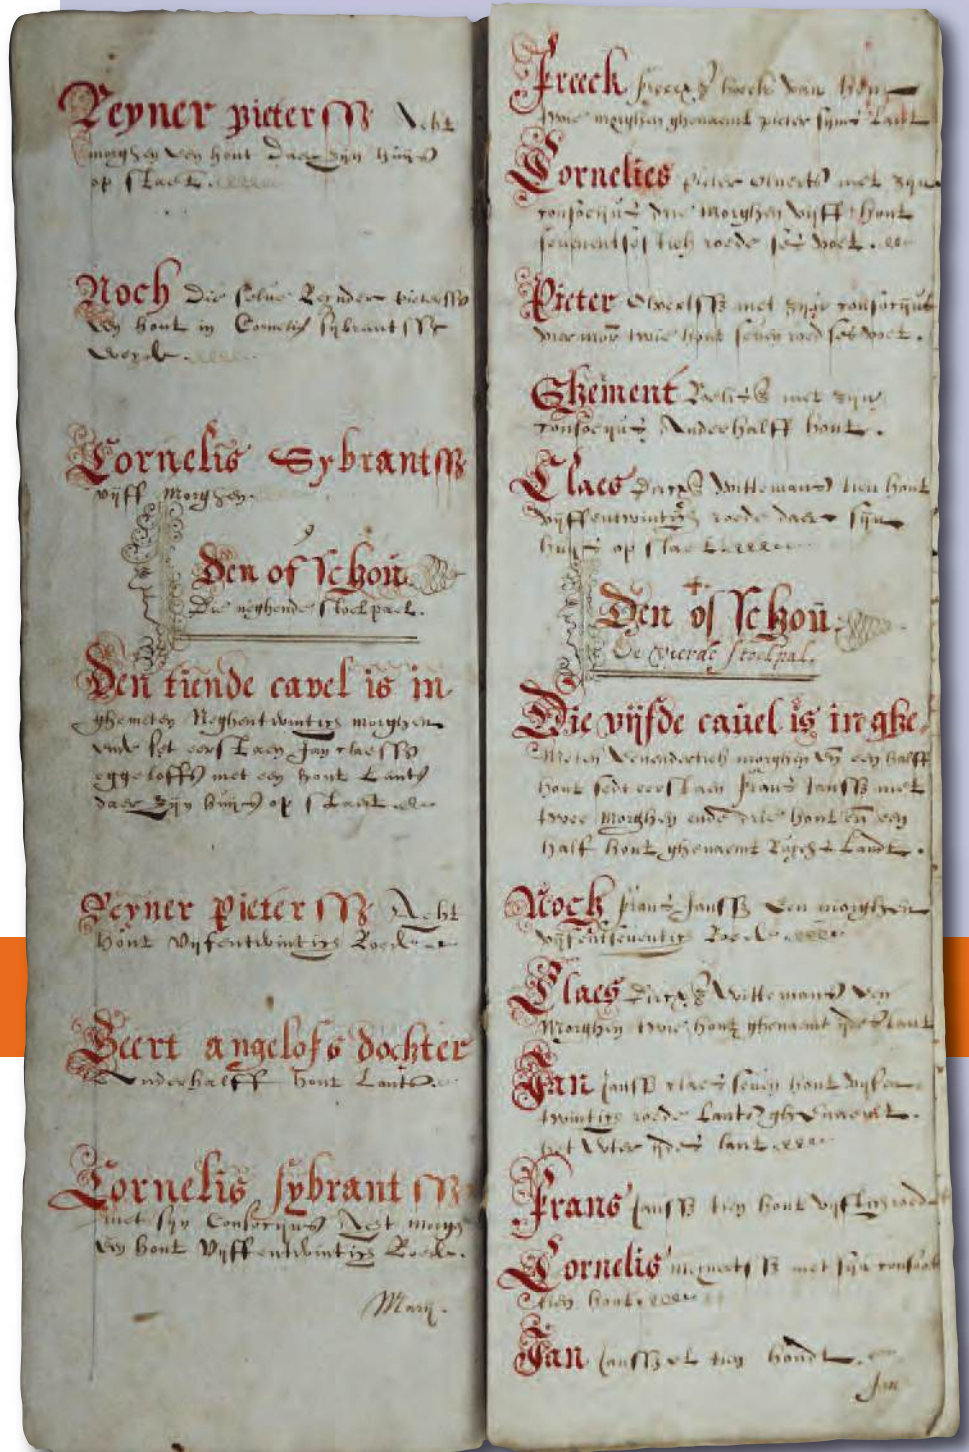 Reyner pieterss Acht
morghen een hont daer zijn huijs
op staet
Noch die selve Reynder pieterss
een hont in Cornelis sybrantss
weyde
Cornelis Sybrantss
vijff morghen
Den of schou
Die neghende stoelpael.
Den tiende cavel is in
ghemeten Neghentwintich morghen
ende set eerstaen Jan claess
eggeloffs met een hont Lants
daer zijn huijs op staet
Reyner Pieterss Acht
hont vijfentwintich Roede
Geert angelofs dochter
Anderhalff hont Lants
Cornelis sybrantss
met sijn Consorijns Acht morgen
een hont Vijffentwintich Roede.
Marij.
Freeck hoeck van
twie morghen ghenaemt pieter symes Lant
Cornelies pieter oluerts met zijn
consorijns drie morghen vijff hont
seuenentsestich roede ses voet.
Pieter Oluertss met zijn consorijns
vier mor twie hont seuen roed ses voet.
Skement met zijn
consorijns Anderhalff hont.
Claes Dircxs Wittemans tien hont
vijffentwintich roede daer sijn
huijs op staet
Den of schou
De vierde stoelpal.
Die vijfde cauel is in ghe
meten eenendertich morghen en een halff
hont sedt eerstaen Frans Janss met
twee morghen ende drie hont en een
half hont ghenaemt Landt.
Noch frans Janss Een morghen
vijfentseuentich Roede
Claes Dircxs Wittemans een
Morghen twie hont ghenaemt lant
Jan Janss claes seuen hont vijfen
twintich roede Lants ghenaemt
het lant
Frans Janss tien hont vijftich roede
Cornelis meinerts ss met sijn consort
tien hont
Jan Janss el tien hondt
Jan